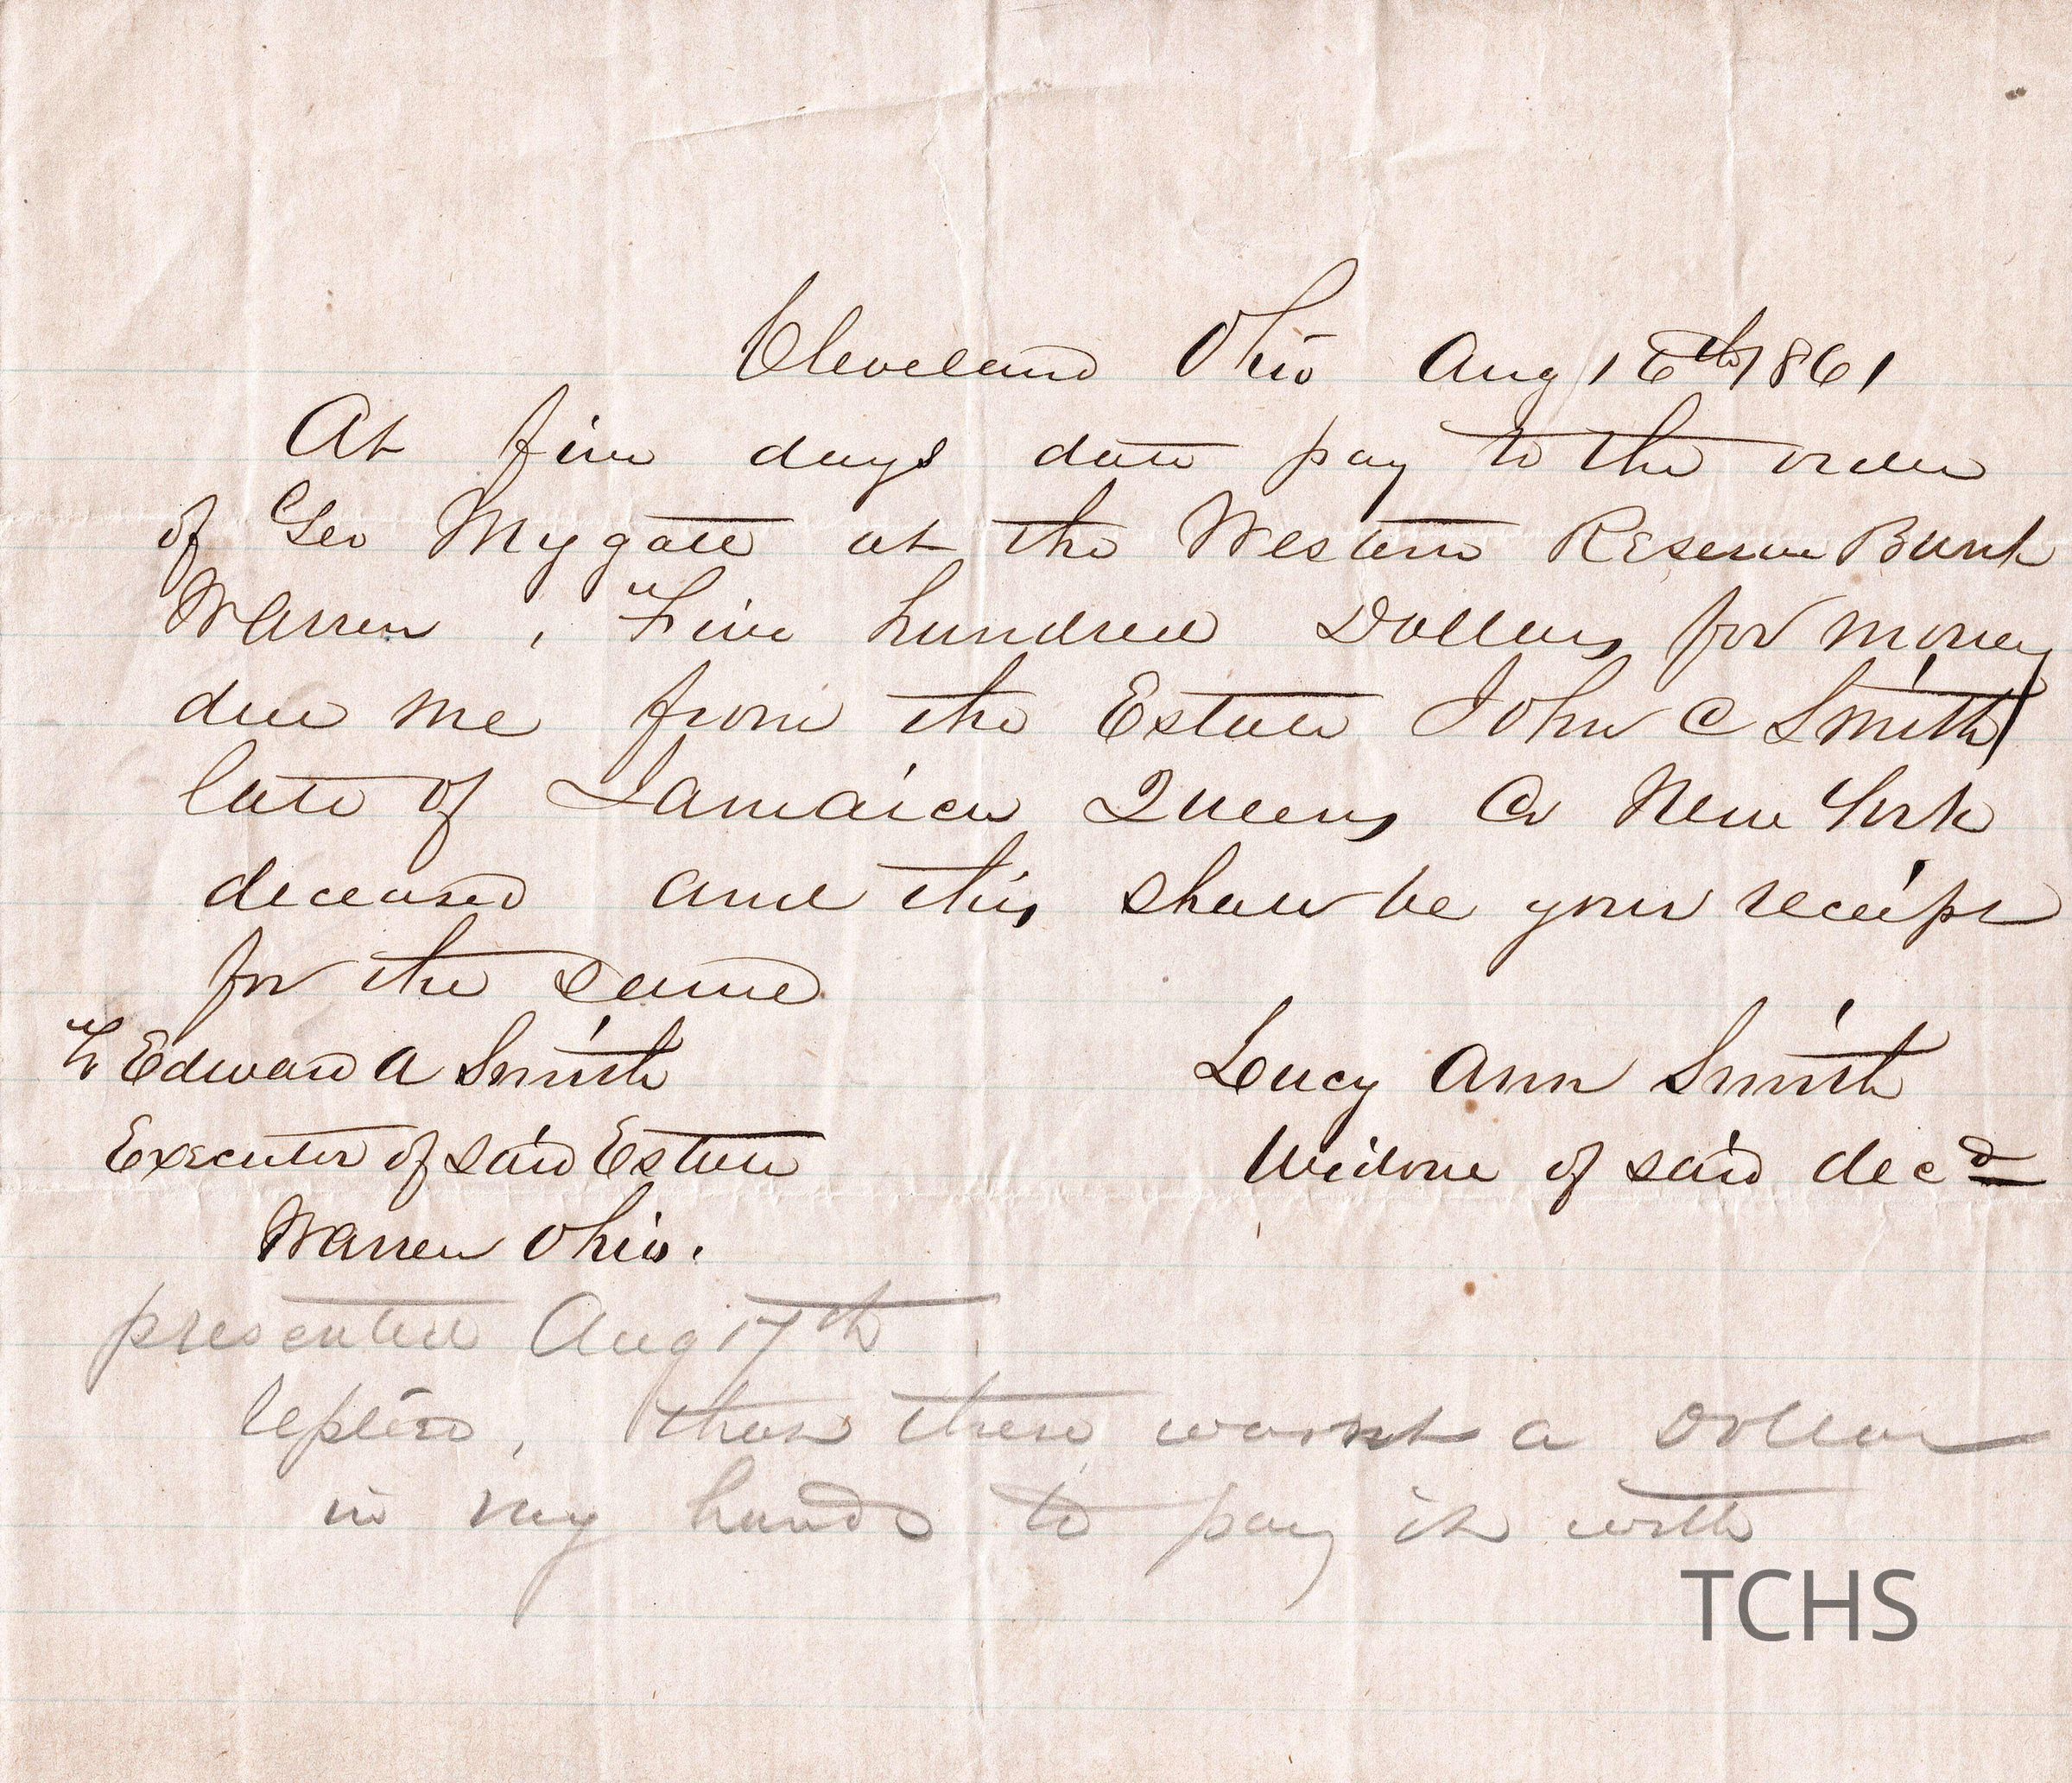 Cleveland Ohio Aug 16th 1861
At five days date pay to the order
of Geo Mygatt at the Western Reserve Bank
Warren, Five hundred Dollars for money
due me from the Estate John C Smith
late of Jamaica Queens Co New York
deceased and this shall be your receipt
for the same
To Edward A Smith
Lucy Ann Smith
Executor of said Estate
Widow of said decd
Warren Ohio.
presented Aug 17th
replied, that there wasnt a Dollar
in my hands to pay it with
TCHS